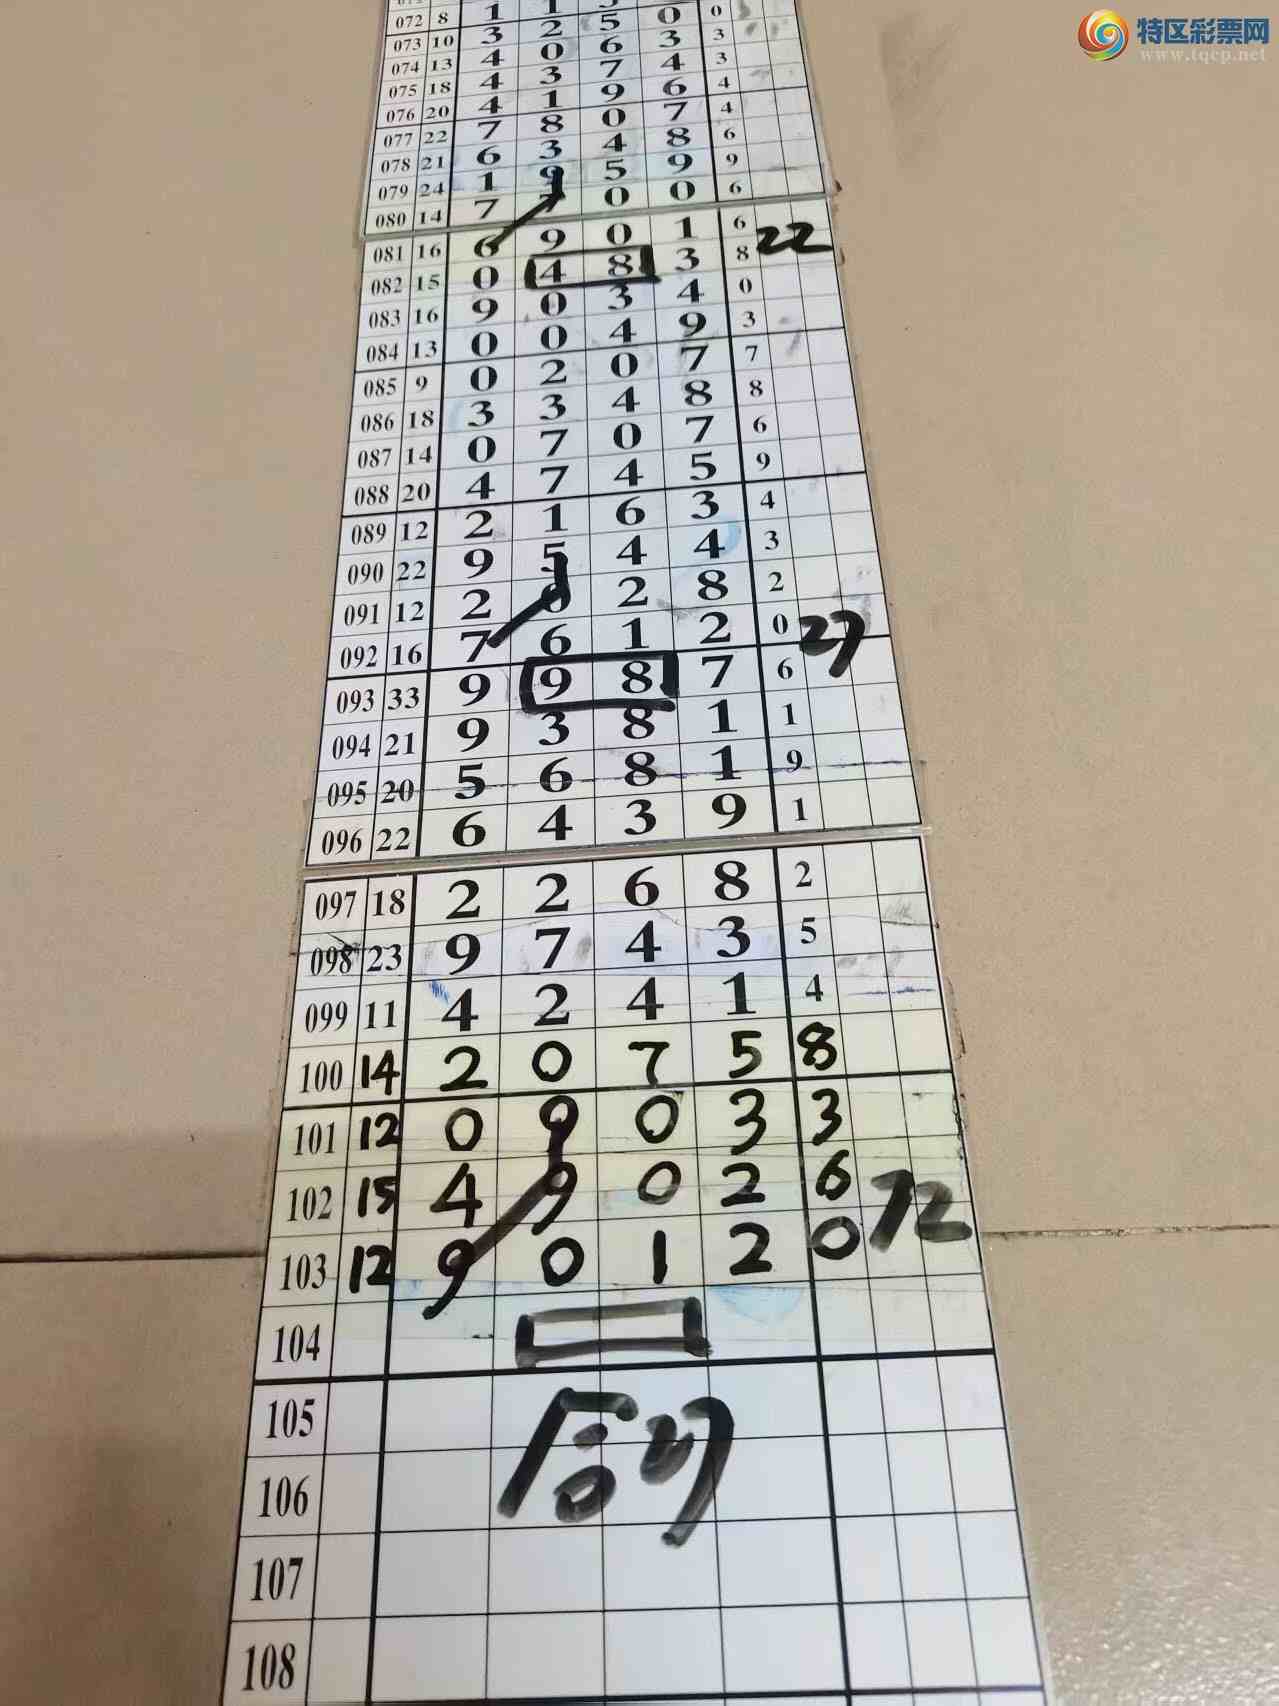 072 8 1 1
073 10 3 2 5 0 0
074 13 4 0 6 3 3
075 18 4 3 7 4 3
076 20 4 1 9 6 4
077 22 7 8 0 7 4
078 21 6 3 4 8 6
079 24 1 9 5 9 9
080 14 7 7 0 0 6
081 16 6 9 0 1 6 22
082 15 0 4 8 3 8
083 16 9 0 3 4 0
084 13 0 0 4 9 3
085 9 0 2 0 7 7
086 18 3 3 4 8 8
087 14 0 7 0 7 6
088 20 4 7 4 5 9
089 12 2 1 6 3 4
090 22 9 5 4 4 3
091 12 2 0 2 8 2
092 16 7 6 1 2 0 27
093 33 9 9 8 7 6
094 21 9 3 8 1 1
095 20 5 6 8 1 9
096 22 6 4 3 9 1
097 18 2 2 6 8 2
098 23 9 7 4 3 5
099 11 4 2 4 1 4
100 14 2 0 7 5 8
101 12 0 9 0 3 3
102 15 4 9 0 2 6 72
103 12 9 0 1 2 0
104
105
106
107
108
特区彩票网
www.tqcp.net